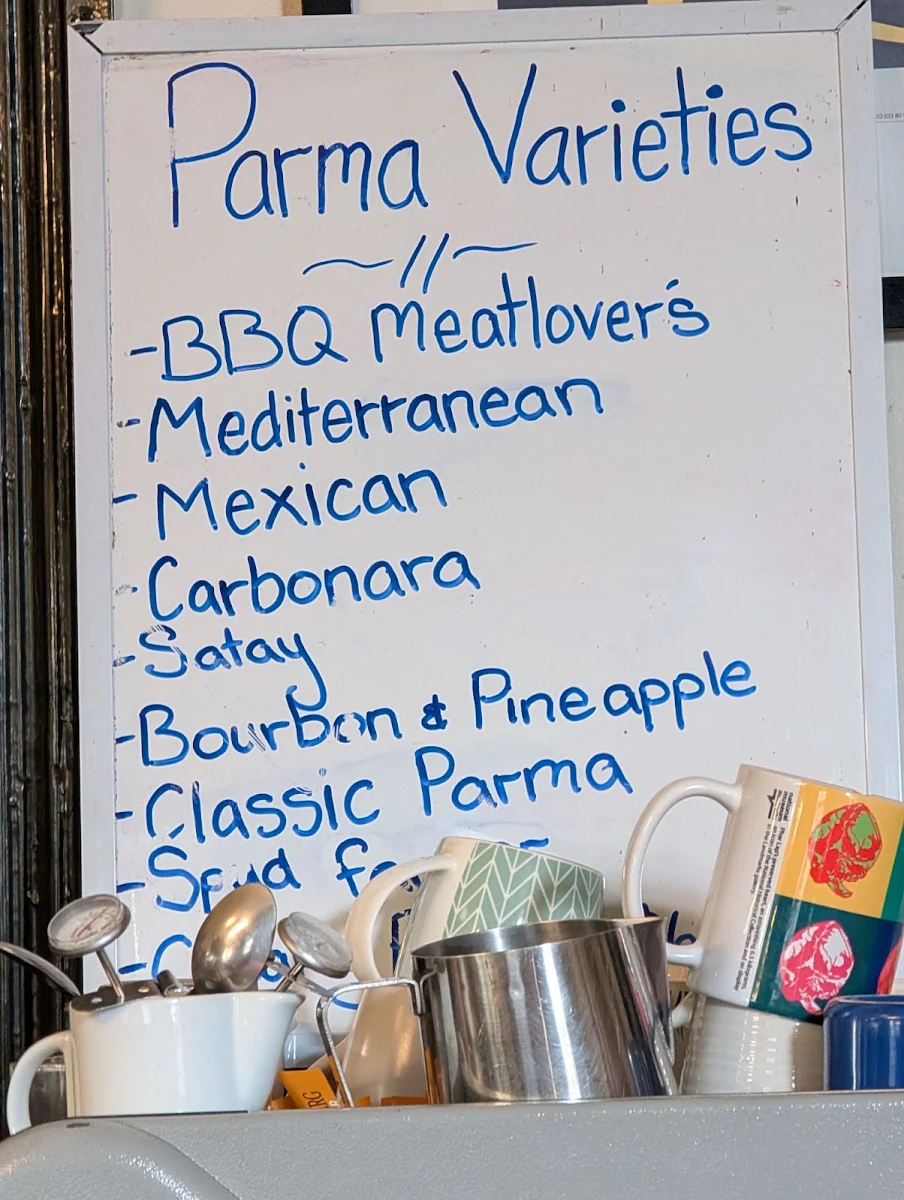 Parma Varieties
~//~
-BBQ Meatlover's
-Mediterranean
-Mexican
-Carbonara
-Satay
-Bourbon & Pineapple
-Classic Parma
-Spud
national museum
RG